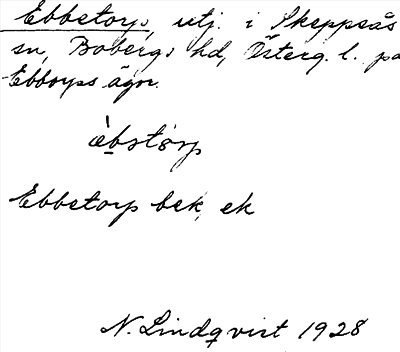 Ebbetorp, utj. i Skeppsås
sn, Bobergs hd, Österg. l. på
Ebborps ägor.
èbstórp
Ebbetorp bek, ek
N. Lindqvist 1928